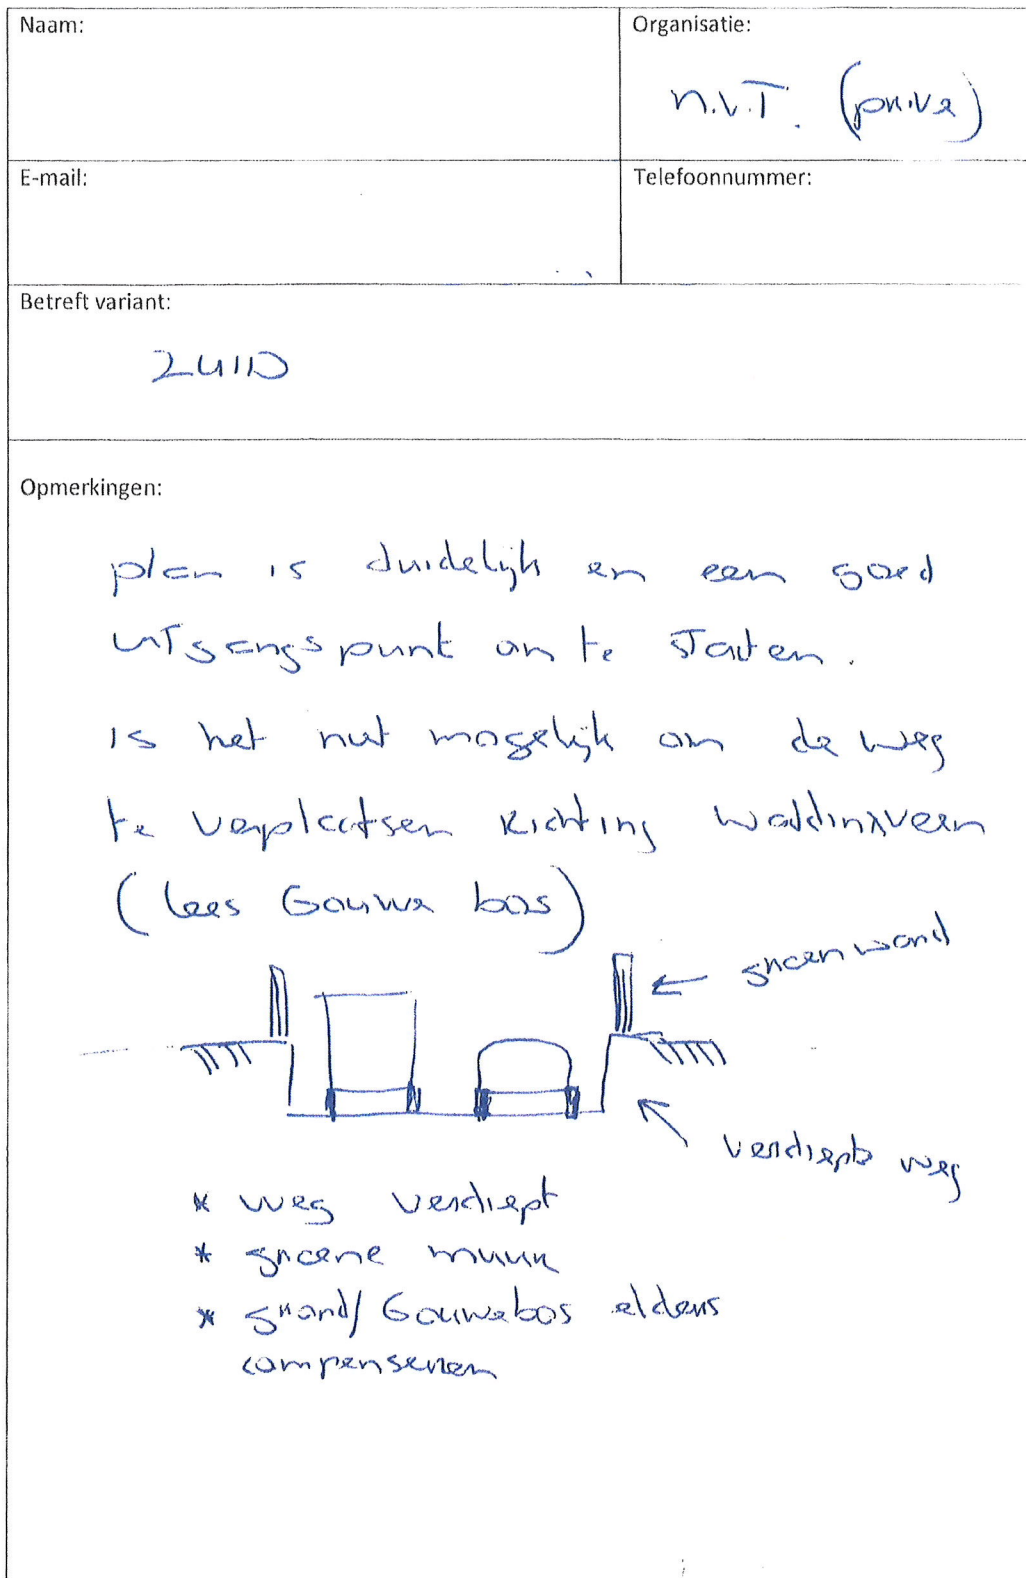 Naam:
Organisatie:
n.v.T. (privé)
E-mail:
Telefoonnummer:
Betreft variant:
ZUID
Opmerkingen:
plan is duidelijk en een goed
uitgangspunt om te starten.
is het niet mogelijk om de weg
te verplaatsen richting waddinxveen
(lees Gouwe bos)
groen wand
verdiepte weg
* weg verdiept
* groene muur
* grond/Gouwebos elders
compenseren